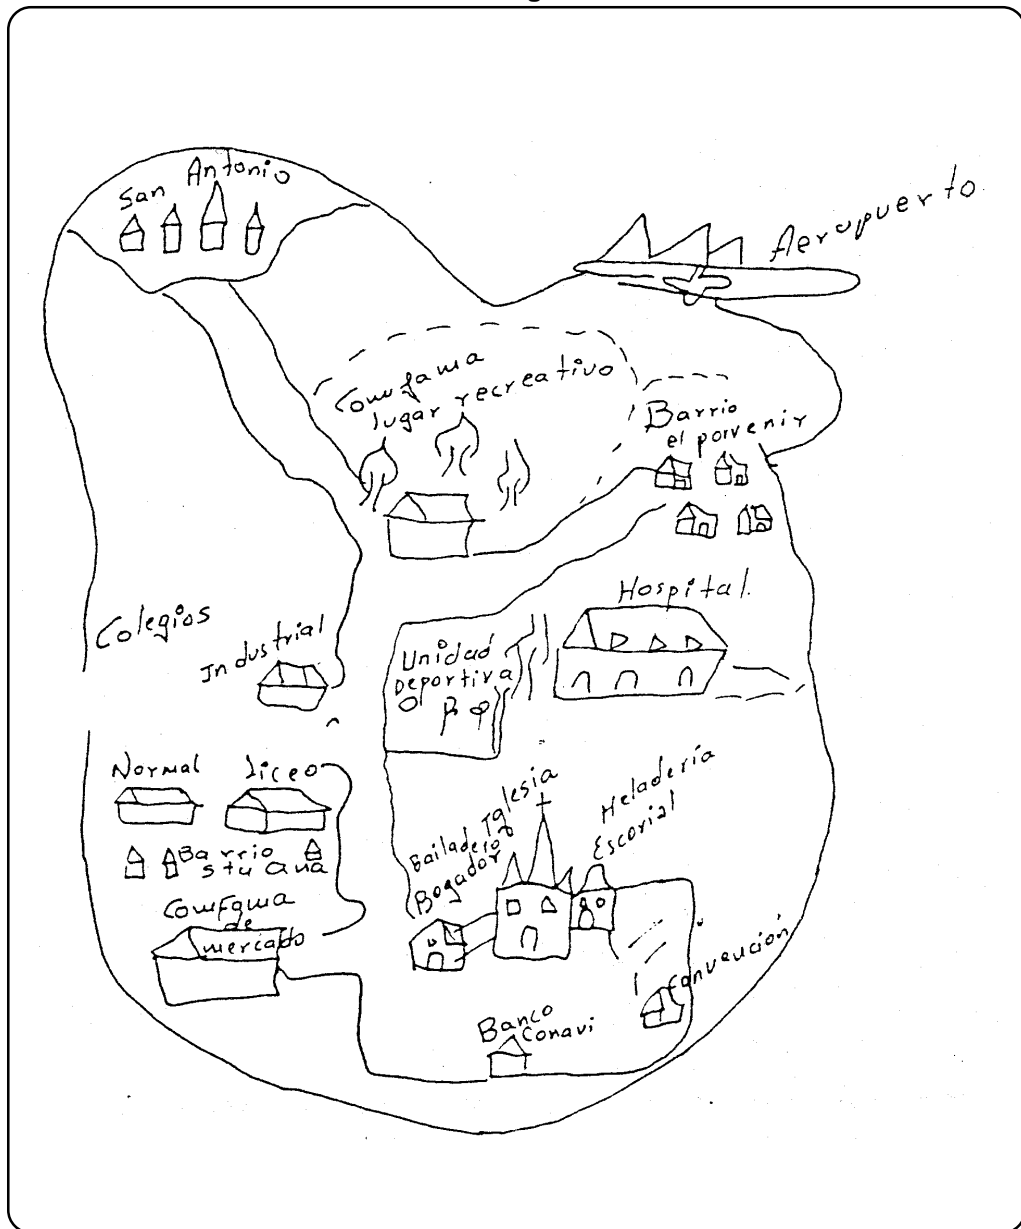 San Antonio
Aeropuerto
Comfama
lugar recreativo
Barrio
el porvenir
Hospital.
Colegios
Industrial
Unidad
Deportiva
Normal
Liceo
Barrio
Sta Ana
Comfama
de
mercado
Bailadero
Bogador
Iglesia
Heladería
Escorial
Convención
Banco
Conavi